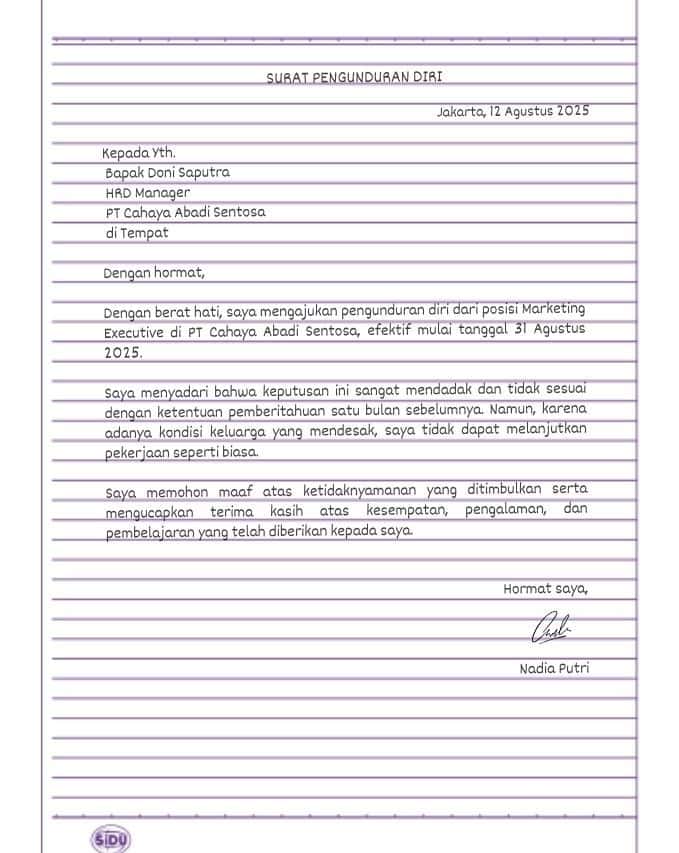 SURAT PENGUNDURAN DIRI
Jakarta, 12 Agustus 2025
Kepada Yth.
Bapak Doni Saputra
HRD Manager
PT Cahaya Abadi Sentosa
di Tempat
Dengan hormat,
Dengan berat hati, saya mengajukan pengunduran diri dari posisi Marketing
Executive di PT Cahaya Abadi Sentosa, efektif mulai tanggal 31 Agustus
2025.
Saya menyadari bahwa keputusan ini sangat mendadak dan tidak sesuai
dengan ketentuan pemberitahuan satu bulan sebelumnya. Namun, karena
adanya kondisi keluarga yang mendesak, saya tidak dapat melanjutkan
pekerjaan seperti biasa.
Saya memohon maaf atas ketidaknyamanan yang ditimbulkan serta
mengucapkan terima kasih atas kesempatan, pengalaman, dan
pembelajaran yang telah diberikan kepada saya.
Hormat saya,
Nadia Putri
SiDU